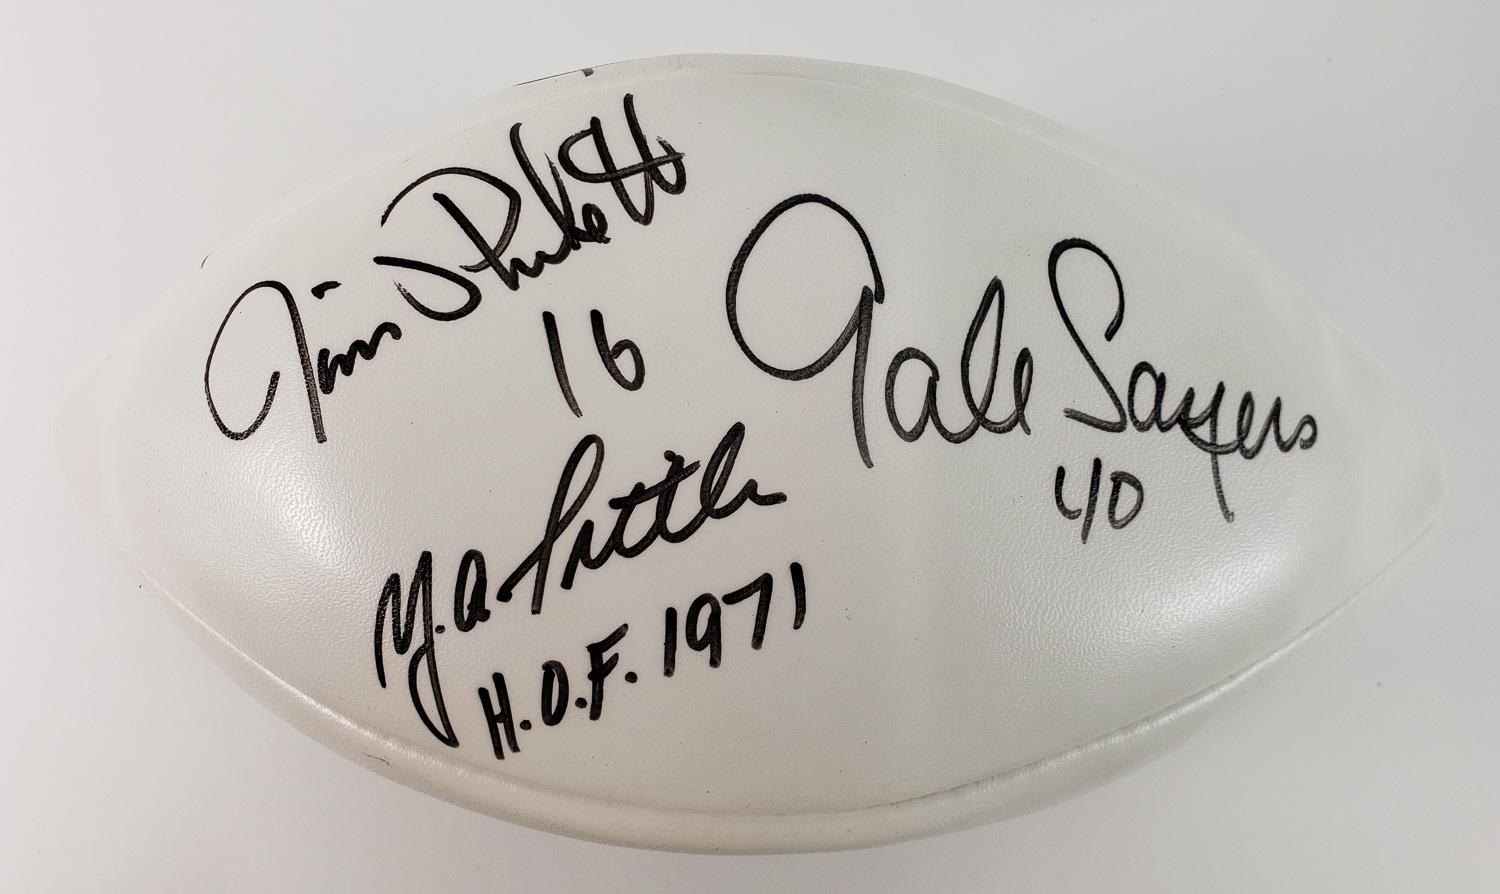 Jim Plunkett
16
Gale Sayers
40
Y.A. Tittle
H.O.F. 1971